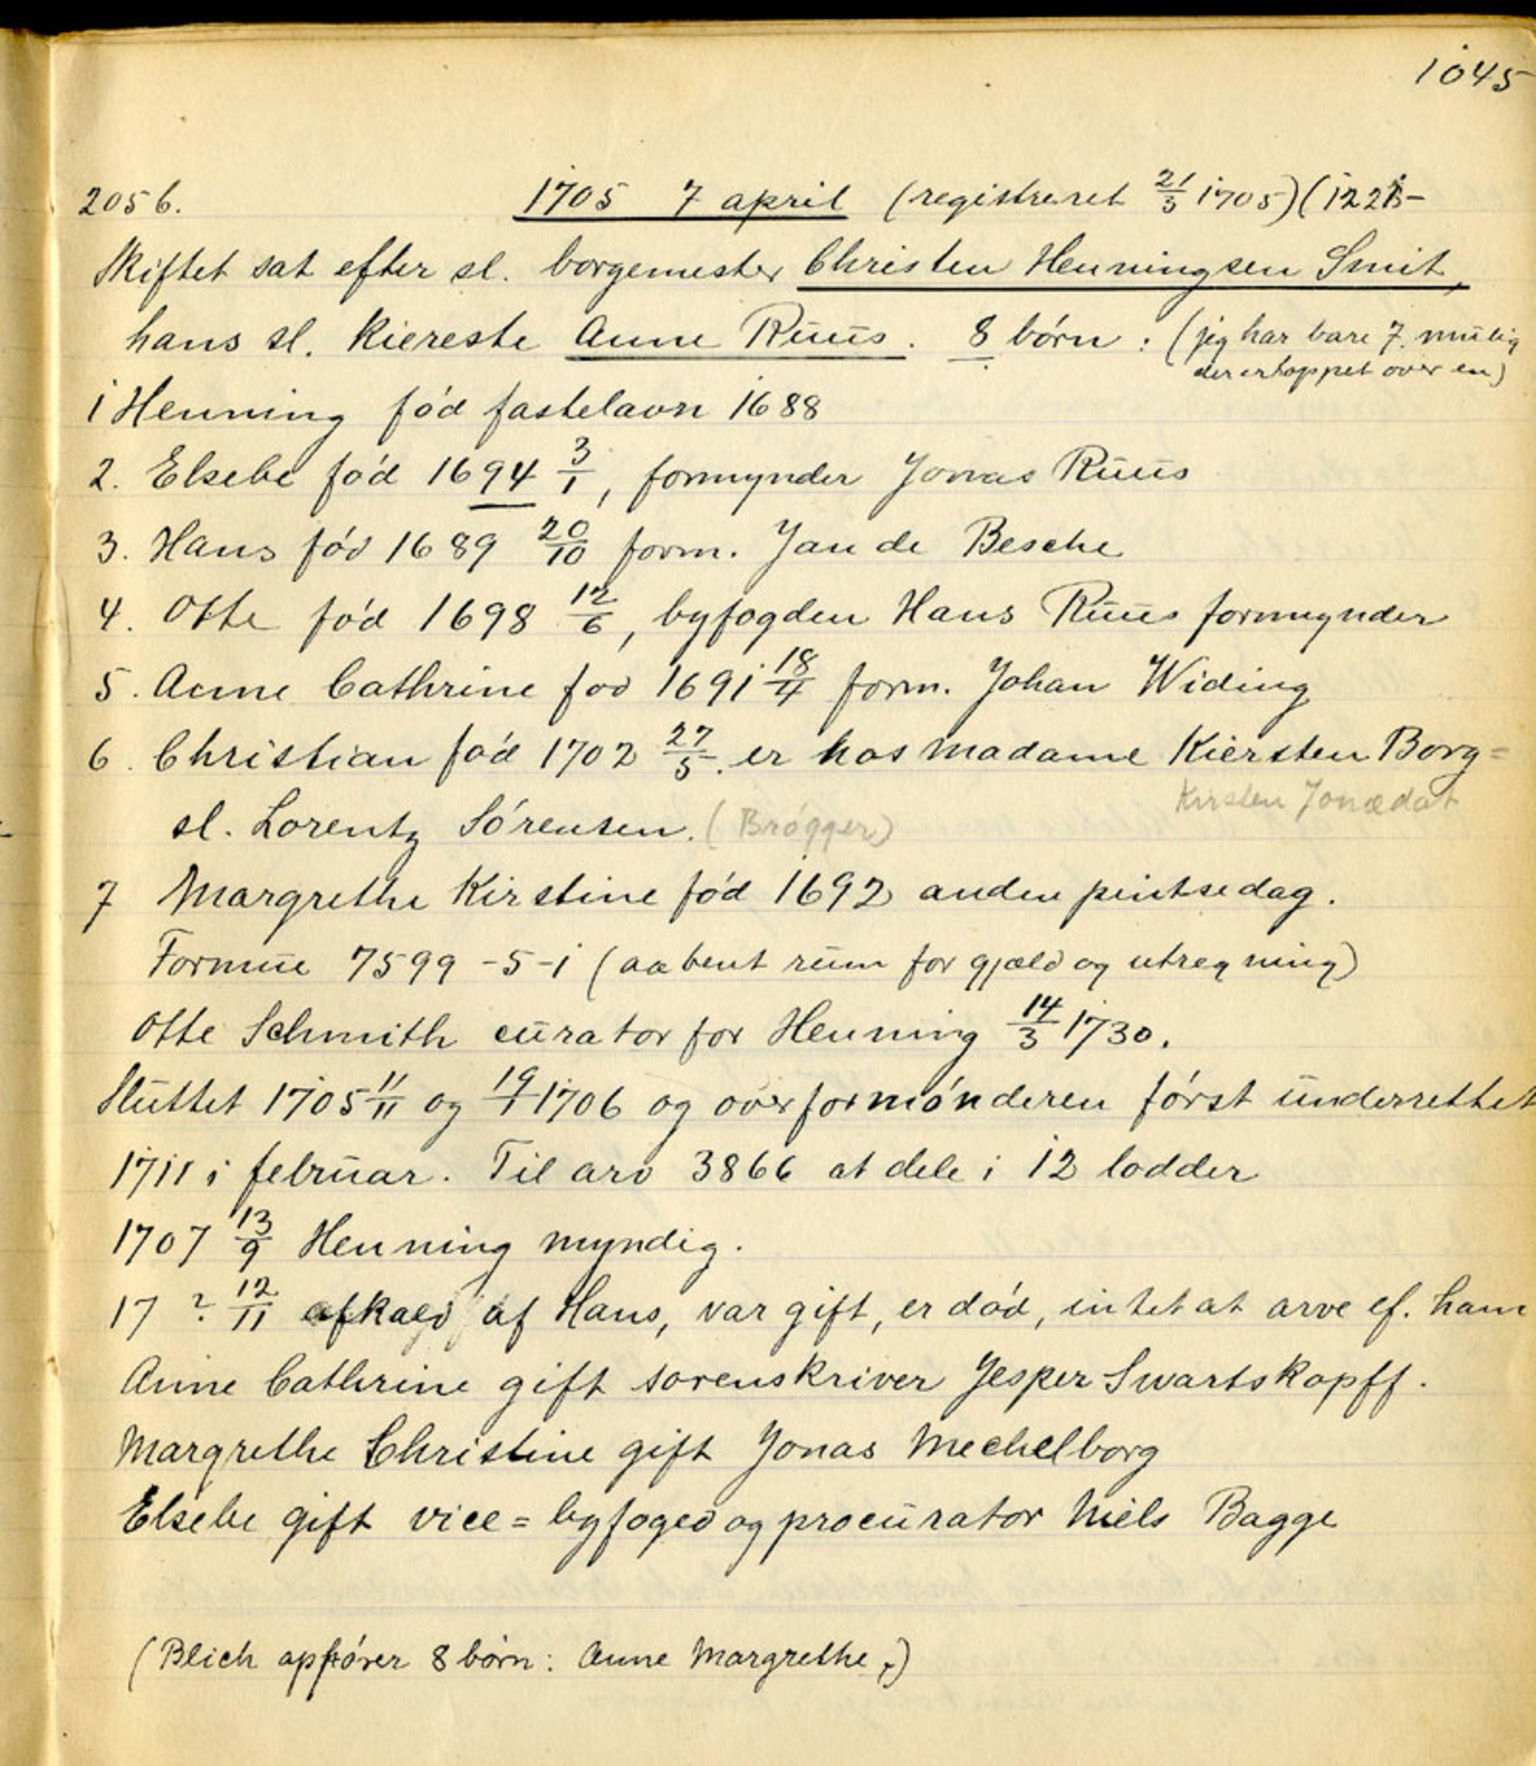 1045
2056. 1705 7 april (registreret 21/3 1705) (1221-
Skiftet sat efter sl. borgemester Christen Henningsen Smit,
hans sl. Kiereste Anne Ruus. 8 børn : (jeg har bare 7. mulig
der er hoppet over en)
1 Henning fød fastelavn 1688
2. Elsebe fød 1694 3/1, formynder Jonas Ruus
3. Hans fød 1689 20/10 form. Jan de Besche
4. Otte fød 1698 12/6, byfogden Hans Ruus formynder
5. Anne Cathrine fød 1691 18/4 form. Johan Widing
6. Christian fød 1702 27/5. er hos madame Kiersten Borg=
Kirsten Jonædat
sl. Lorentz Sørensen. (Brøgger)
7 Margrethe Kirstine fød 1692 anden pintsedag.
Formue 7599 -5-1 (aabent rum for gjæld og utregning)
Otte Schmith curator for Henning 14/3 1730.
Sluttet 1705 11/11 og 19/1 1706 og overformønderen først underrettet
1711 i februar. Til arv 3866 at dele i 12 lodder
1707 13/9 Henning myndig.
17 ? 12/11 afkald af Hans, var gift, er død, intet at arve ef. ham
Anne Cathrine gift sorenskriver Jesper Swartskopff.
Margrethe Christine gift Jonas Mechelborg
Elsebe gift vice=byfoged og procurator Niels Bagge
(Blich opfører 8 børn: Anne Margrethe,)